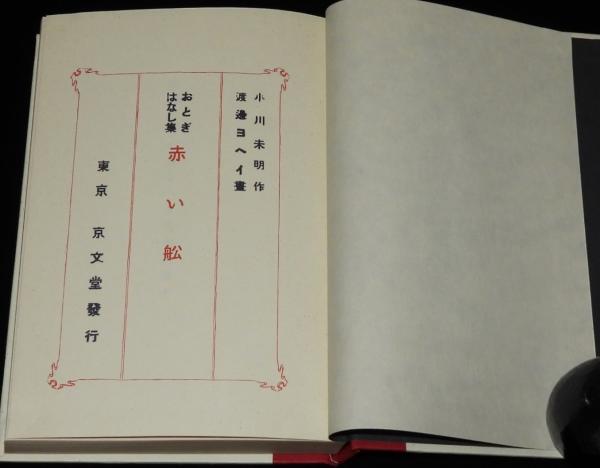 小川未明作
渡邊ヨヘイ畫
おとぎ
はなし集
赤い舩
東京 京文堂發行